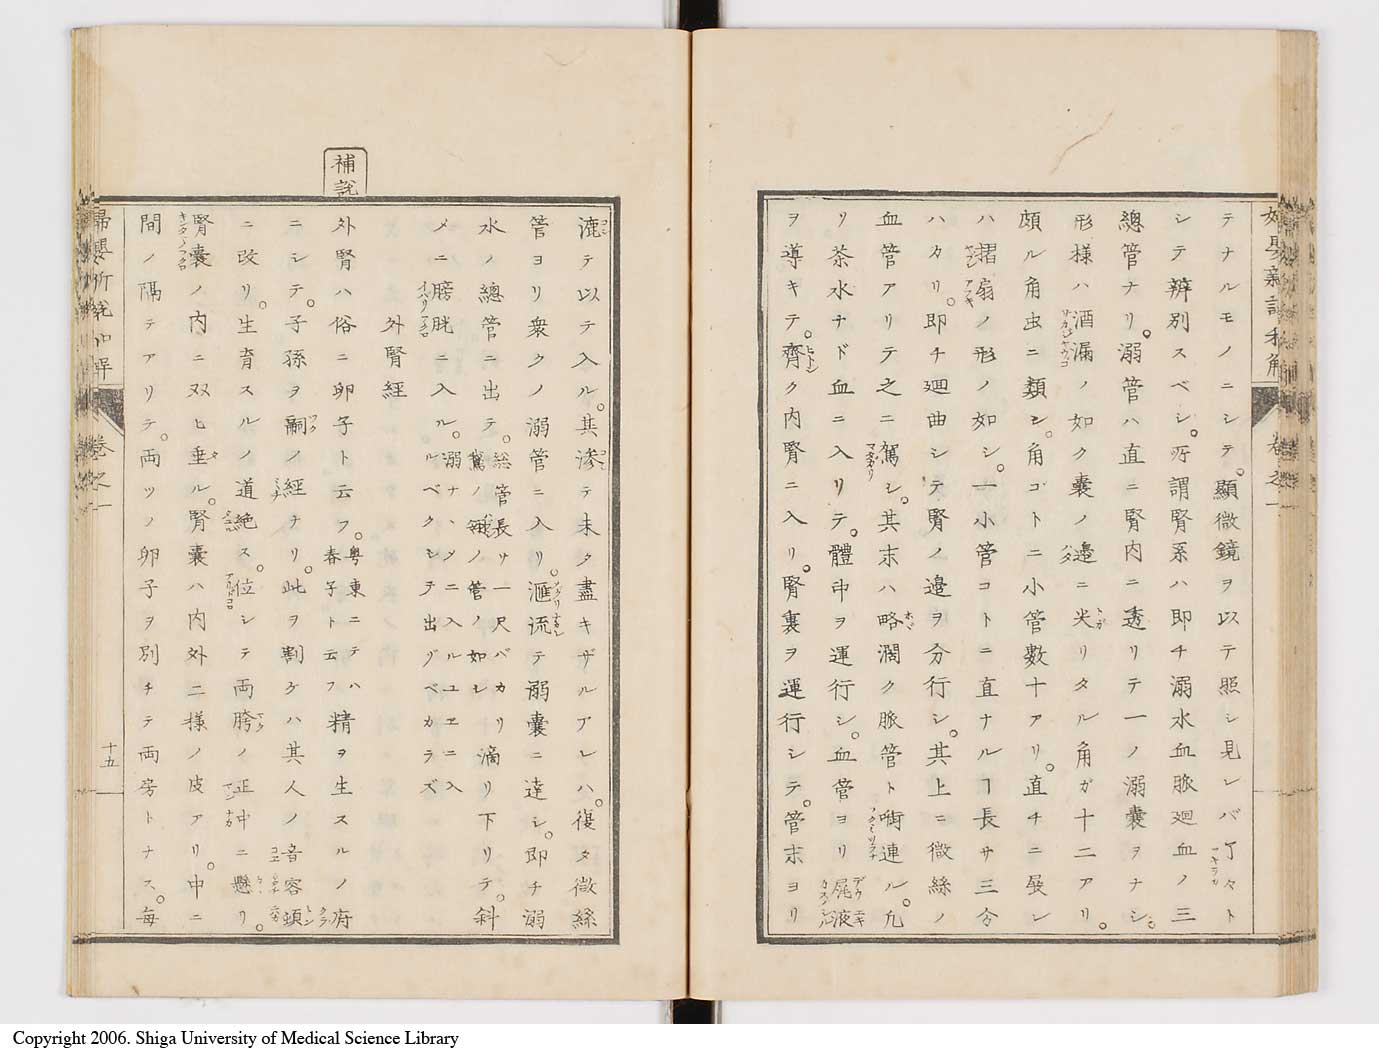 テナルモノニシテ。顯微鏡ヲ以テ照シ見レバ了々ト
シテ辨別スベシ。所謂腎系ハ即チ溺水血脈廻血ノ三
總管ナリ。溺管ハ直ニ腎内ニ透リテ一ノ溺囊ヲナシ。
形樣ハ酒漏ノ如ク囊ノ邊ニ尖リタル角ガ十二アリ。
頗ル角虫ニ類シ。角コトニ小管數十アリ。直チニ展レ
ハ摺扇ノ形ノ如シ。一小管コトニ直ナルヿ長サ三分
ハカリ。即チ廻曲シテ腎ノ邊ヲ分行シ。其上ニ微絲ノ
血管アリテ之ニ駕シ。其末ハ略濶ク脈管ト啣連ル。凢
リ茶水ナド血ニ入リテ。體中ヲ運行シ。血管ヨリ屍液
ヲ導キテ。齊ク内腎ニ入リ。腎裏ヲ運行シテ。管末ヨリ
漉テ以テ入ル。其滲テ未タ盡キザルアレハ。復タ微絲
管ヨリ衆クノ溺管ニ入リ。滙流テ溺囊ニ達シ。即チ溺
水ノ總管ニ出テ。総管長サ一尺バカリ滴リ下リテ。斜
メニ膀胱ニ入ル。溺ナハタニ入ルユヱニ入ルベクシテ出ヅベカラズ
外腎經
補説
外腎ハ俗ニ卵子ト云フ。粤東ニテハ春子ト云フ精ヲ生スルノ府
ニシテ。子孫ヲ嗣ノ經ナリ。此ヲ割ケハ其人ノ音容頓
ニ改リ。生育スルノ道絶ス。位シテ両胯ノ正中ニ懸リ。
腎囊ノ内ニ双ヒ垂ル。腎囊ハ内外二樣ノ皮アリ。中ニ
間ノ隔テアリテ。両ツノ卵子ヲ別チテ両房トナス。毎
卷之一
十五
Copyright 2006. Shiga University of Medical Science Library